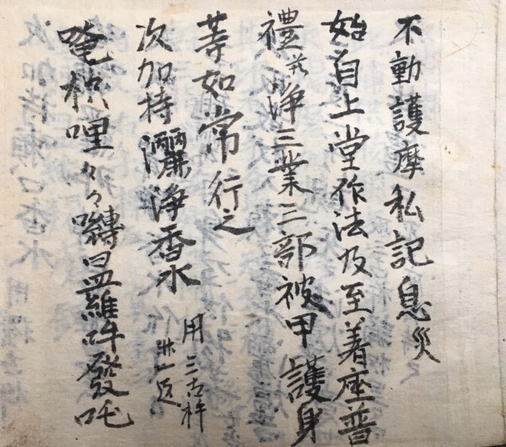 不動護摩私記息災
始自上堂作法及至着座普
禮 浄三業三部被甲護身
等如常行之
次加持灑浄香水 用三古杵
唵枳哩々々嚩日羅吽發吒